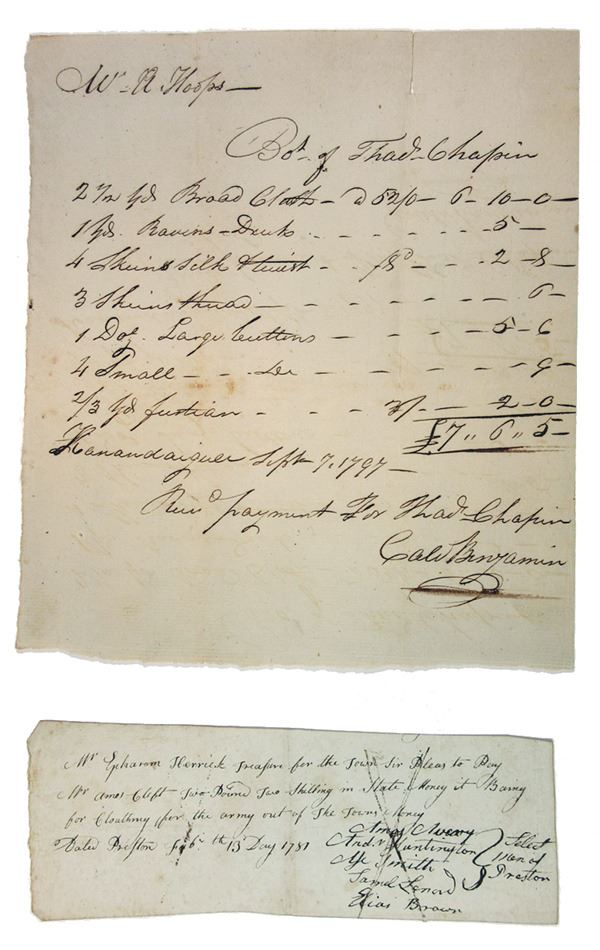 Mr A. Hoops—
Bot. of Thadd Chapin
2 1/2 yds Broad Cloth — a 52/0 — 6 - 10 - 0 —
1 yd. Ravens - Duck - - - - - 5 —
4 Skeins Silk twist - - /8d - - - 2 - 8 —
3 Skeins thread — - - - - - - 6 —
1 Doz. Large buttons — - - - 5 - 6
4 Small - - Do - - - - - 9 —
2/3 yd fustian - - - - 3/. — - 2 - 0 —
£7 ,, 6 ,, 5 —
Kanandaigua Sept 7, 1797 —
Recd payment For Thadd Chapin
Cald Benjamin
Mr Epharom Herrick Treasure for the Town Sir Pleas to Pay
Mr Amos Cleft Two Pound Two Shilling in State Money it Baing
for Cloathing for the army out of The Towns Money
Dated Preston 13 Day 1781
Amos Avery
Andw Huntington
Smith
Saml Lenard
Elias Brown
Select
men of
Preston